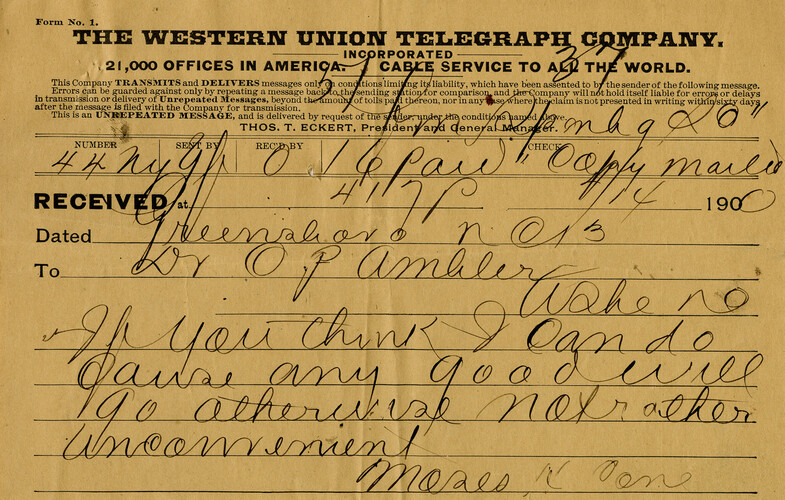 Form No. 1.
THE WESTERN UNION TELEGRAPH COMPANY.
INCORPORATED
21,000 OFFICES IN AMERICA. CABLE SERVICE TO ALL THE WORLD.
This Company TRANSMITS and DELIVERS messages only on conditions limiting its liability, which have been assented to by the sender of the following message.
Errors can be guarded against only by repeating a message back to the sending station for comparison, and the Company will not hold itself liable for errors or delays
in transmission or delivery of Unrepeated Messages, beyond the amount of tolls paid thereon, nor in any case where the claim is not presented in writing within sixty days
after the message is filed with the Company for transmission.
This is an UNREPEATED MESSAGE, and is delivered by request of the sender, under the conditions named above.
THOS. T. ECKERT, President and General Manager.
NUMBER SENT BY REC'D BY CHECK
44 Ny O 16 Paid "Copy mailed
RECEIVED at 417P 4/14 1900
Dated Greensboro N C 13
To Dr O P Ambler
Ashe NC
If you think I can do
cause any good will
go otherwise not rather
unconvenient
Moses H Cone